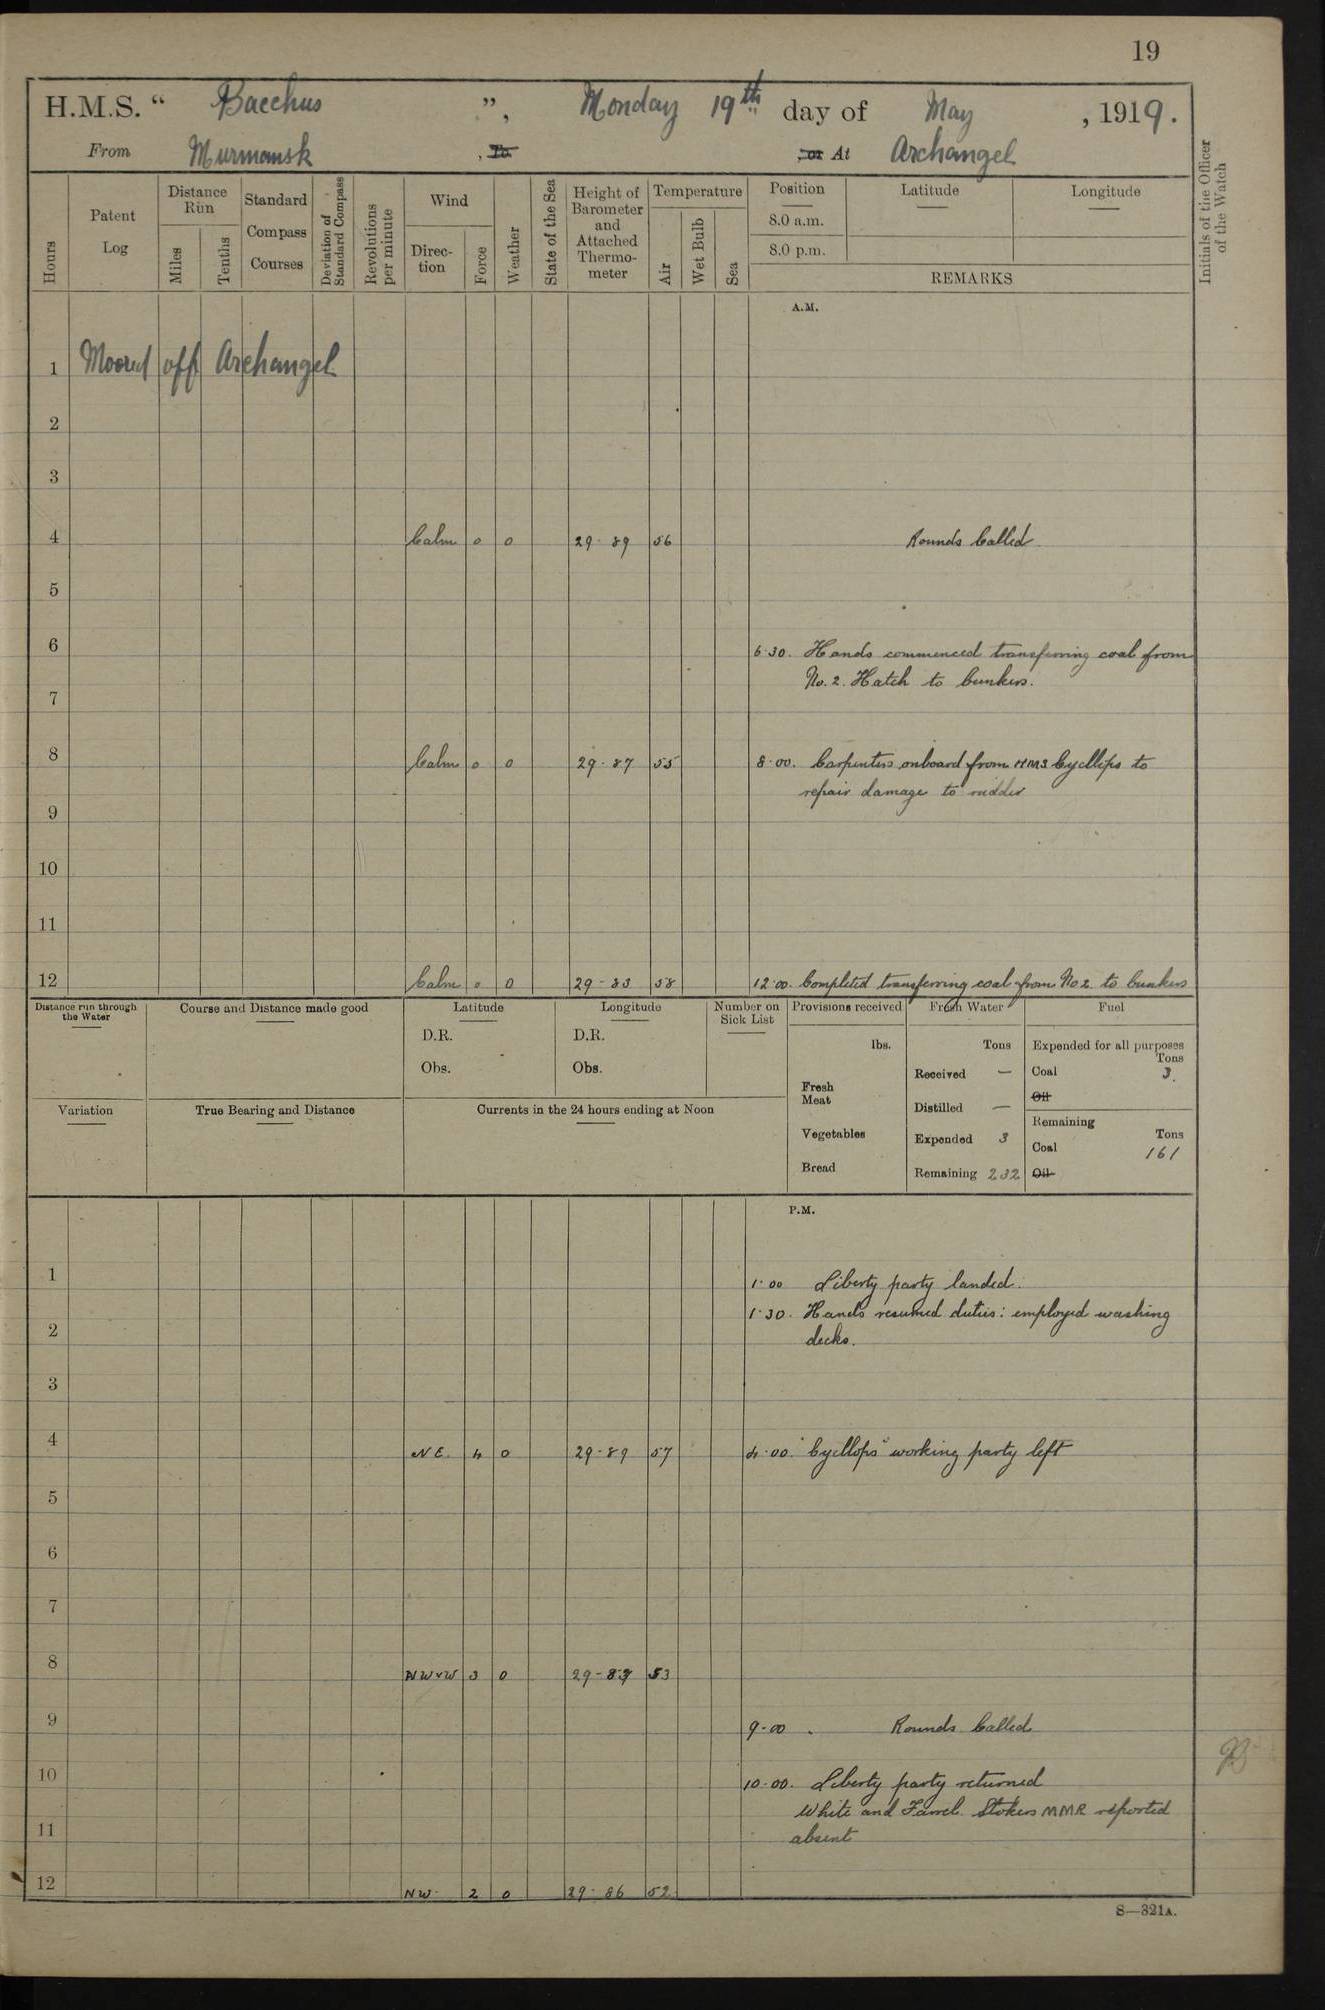 19
H.M.S. “ Bacchus ”, Monday 19th day of May , 1919.
From Murmansk , To , or At Archangel
Hours
Patent Log
Distance Run
Miles
Tenths
Standard Compass Courses
Deviation of Standard Compass
Revolutions per minute
Wind
Direction
Force
Weather
State of the Sea
Height of Barometer and Attached Thermometer
Temperature
Air
Wet Bulb
Sea
Position
8.0 a.m.
8.0 p.m.
Latitude
Longitude
REMARKS
Initials of the Officer of the Watch
A.M.
1 Moored off Archangel
2
3
4 Calm 0 0 29-89 56 Rounds Called
5
6 6.30. Hands commenced transferring coal from
No. 2. Hatch to bunkers.
7
8 Calm 0 0 29-87 55 8.00. Carpenters onboard from HMS Cycllips to
repair damage to rudder
9
10
11
12 Calm 0 0 29-83 58 12.00. Completed transferring coal from No 2 to bunkers
Distance run through the Water
Course and Distance made good
Latitude
D.R.
Obs.
Longitude
D.R.
Obs.
Number on Sick List
Provisions received
lbs.
Fresh Meat
Vegetables
Bread
Fresh Water
Tons
Received —
Distilled —
Expended 3
Remaining 232
Fuel
Expended for all purposes
Tons
Coal 3.
Oil
Remaining
Tons
Coal 161
Oil
Variation
True Bearing and Distance
Currents in the 24 hours ending at Noon
P.M.
1 1.00 Liberty party landed.
1.30. Hands resumed duties: employed washing
2 decks.
3
4 N E. 4 0 29-89 57 4.00. "Cycllops" working party left
5
6
7
8 NWxW 3 0 29-83 53
9 9-00 . Rounds Called
10 10.00. Liberty party returned
White and Farrel. Stokers MMR reported
11 absent
12 NW. 2 0 29-86 52
S—321A.